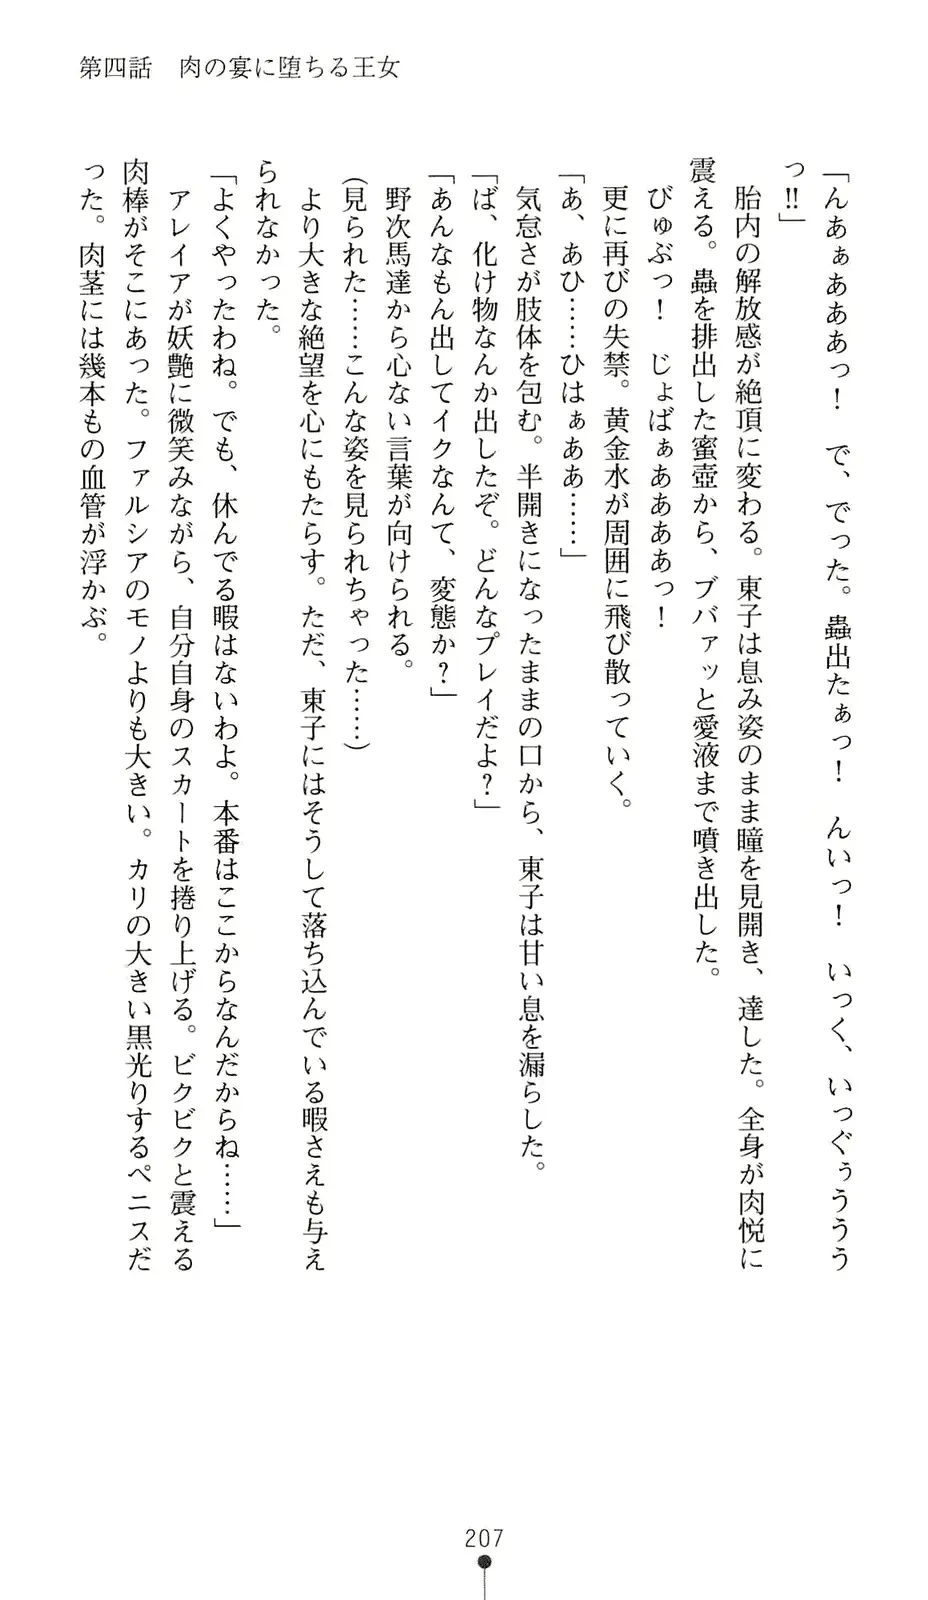 第四話　肉の宴に堕ちる王女
「んあぁあああっ！　で、でった。蟲出たぁっ！　んいっ！　いっく、いっぐぅううう
っ!!」
　胎内の解放感が絶頂に変わる。東子は息み姿のまま瞳を見開き、達した。全身が肉悦に
震える。蟲を排出した蜜壺から、ブバァッと愛液まで噴き出した。
　びゅぶっ！　じょばぁああああっ！
　更に再びの失禁。黄金水が周囲に飛び散っていく。
「あ、あひ……ひはぁああ……」
　気怠さが肢体を包む。半開きになったままの口から、東子は甘い息を漏らした。
「ば、化け物なんか出したぞ。どんなプレイだよ？」
「あんなもん出してイクなんて、変態か？」
　野次馬達から心ない言葉が向けられる。
（見られた……こんな姿を見られちゃった……）
　より大きな絶望を心にもたらす。ただ、東子にはそうして落ち込んでいる暇さえも与え
られなかった。
「よくやったわね。でも、休んでる暇はないわよ。本番はここからなんだからね……」
　アレイアが妖艶に微笑みながら、自分自身のスカートを捲り上げる。ビクビクと震える
肉棒がそこにあった。ファルシアのモノよりも大きい。カリの大きい黒光りするペニスだ
った。肉茎には幾本もの血管が浮かぶ。
207